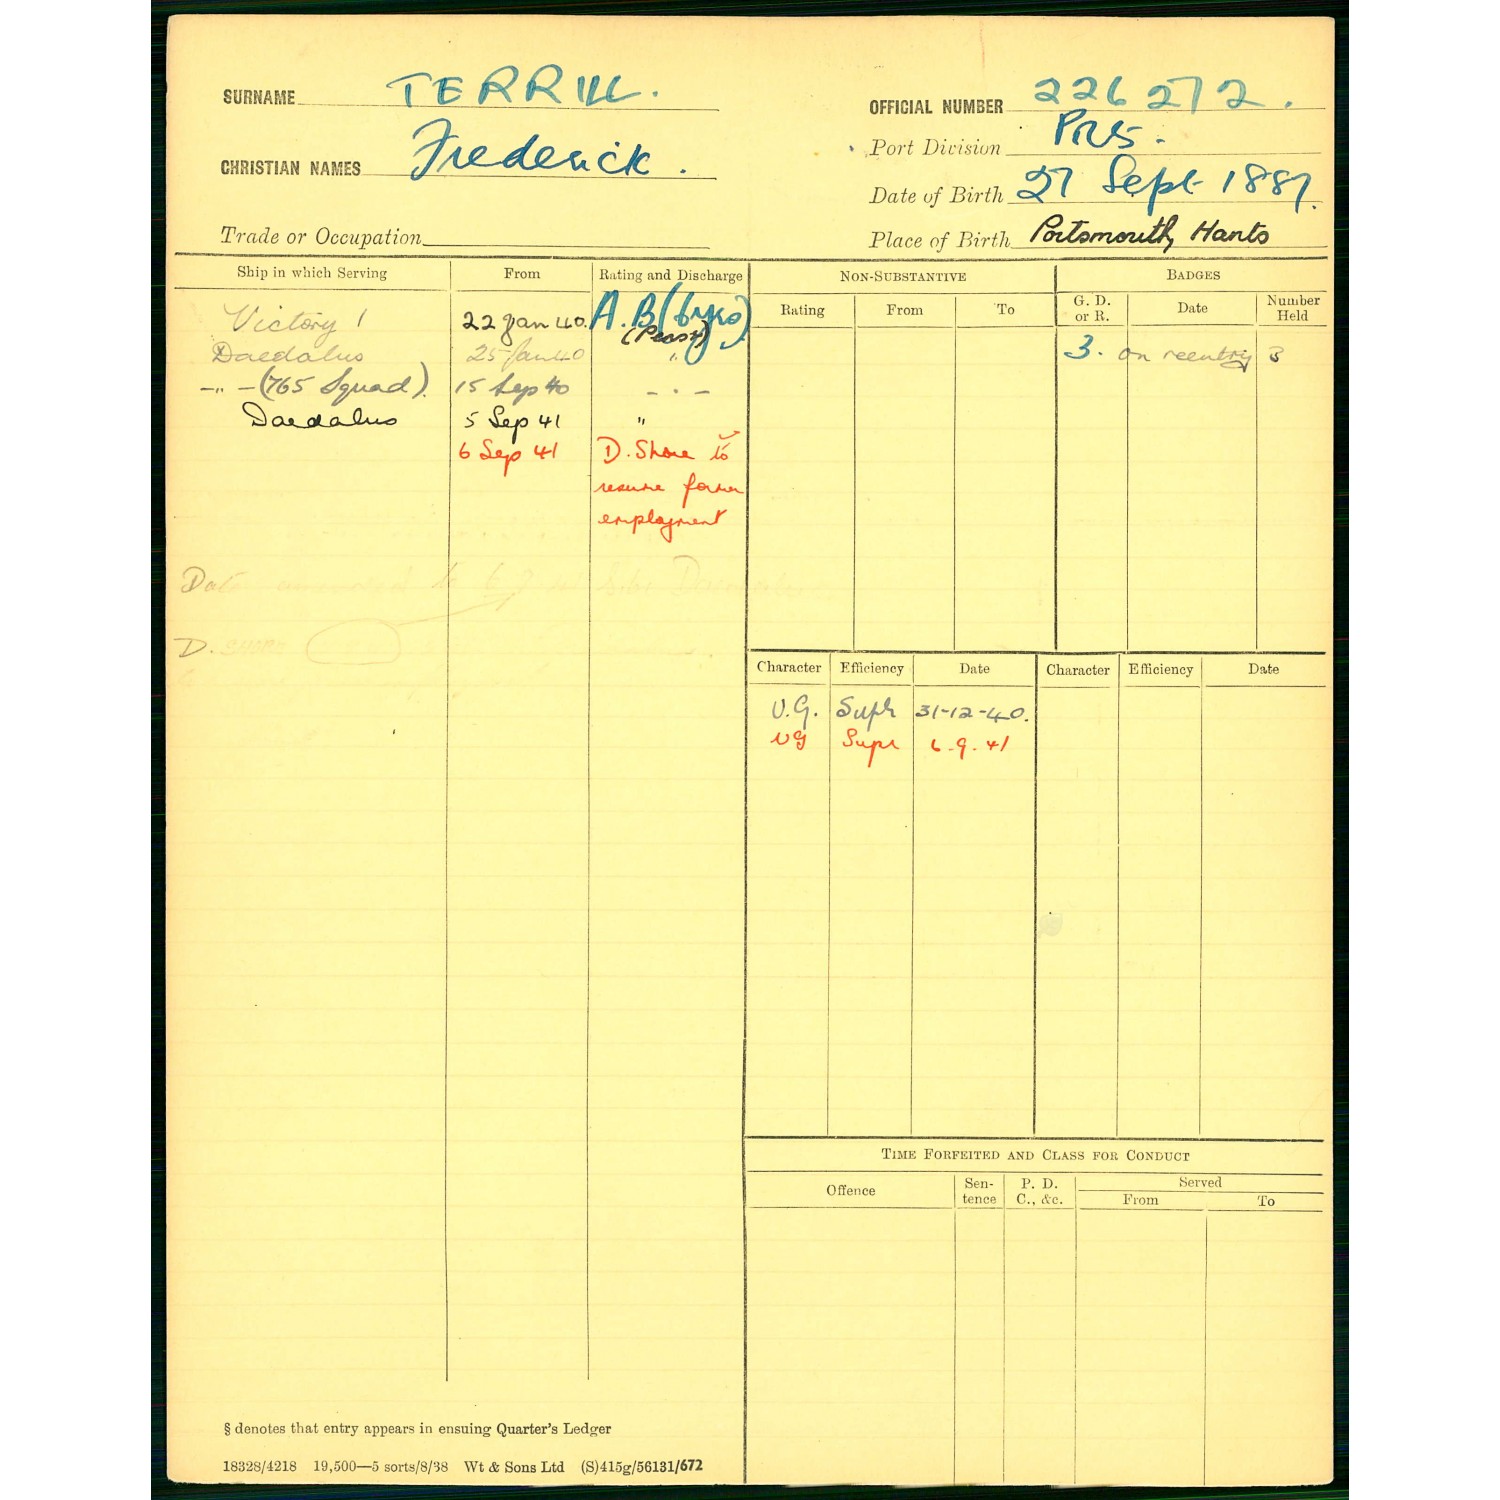 SURNAME TERRILL.
OFFICIAL NUMBER 226272.
Port Division
CHRISTIAN NAMES Frederick.
Date of Birth 27 Sept 1887.
Trade or Occupation
Place of Birth Portsmouth, Hants
Ship in which Serving From Rating and Discharge
Victory 1 22 Jan 40. A.B (6yrs)
(Penst)
Daedalus 25 Jan 40 "
-"- (765 Squad). 15 Sep 40 - " -
Daedalus 5 Sep 41 "
6 Sep 41 D. Shore to
resume former
employment
Date to
D. SHORE
NON-SUBSTANTIVE
Rating From To
BADGES
G. D. or R. Date Number Held
3. on reentry 3
Character Efficiency Date Character Efficiency Date
V.G. Supr 31-12-40.
VG Supr 6.9.41
TIME FORFEITED AND CLASS FOR CONDUCT
Offence Sen-tence P. D. C., &c. Served
From To
§ denotes that entry appears in ensuing Quarter's Ledger
18328/4218 19,500—5 sorts/8/38 Wt & Sons Ltd (S)415g/56131/672